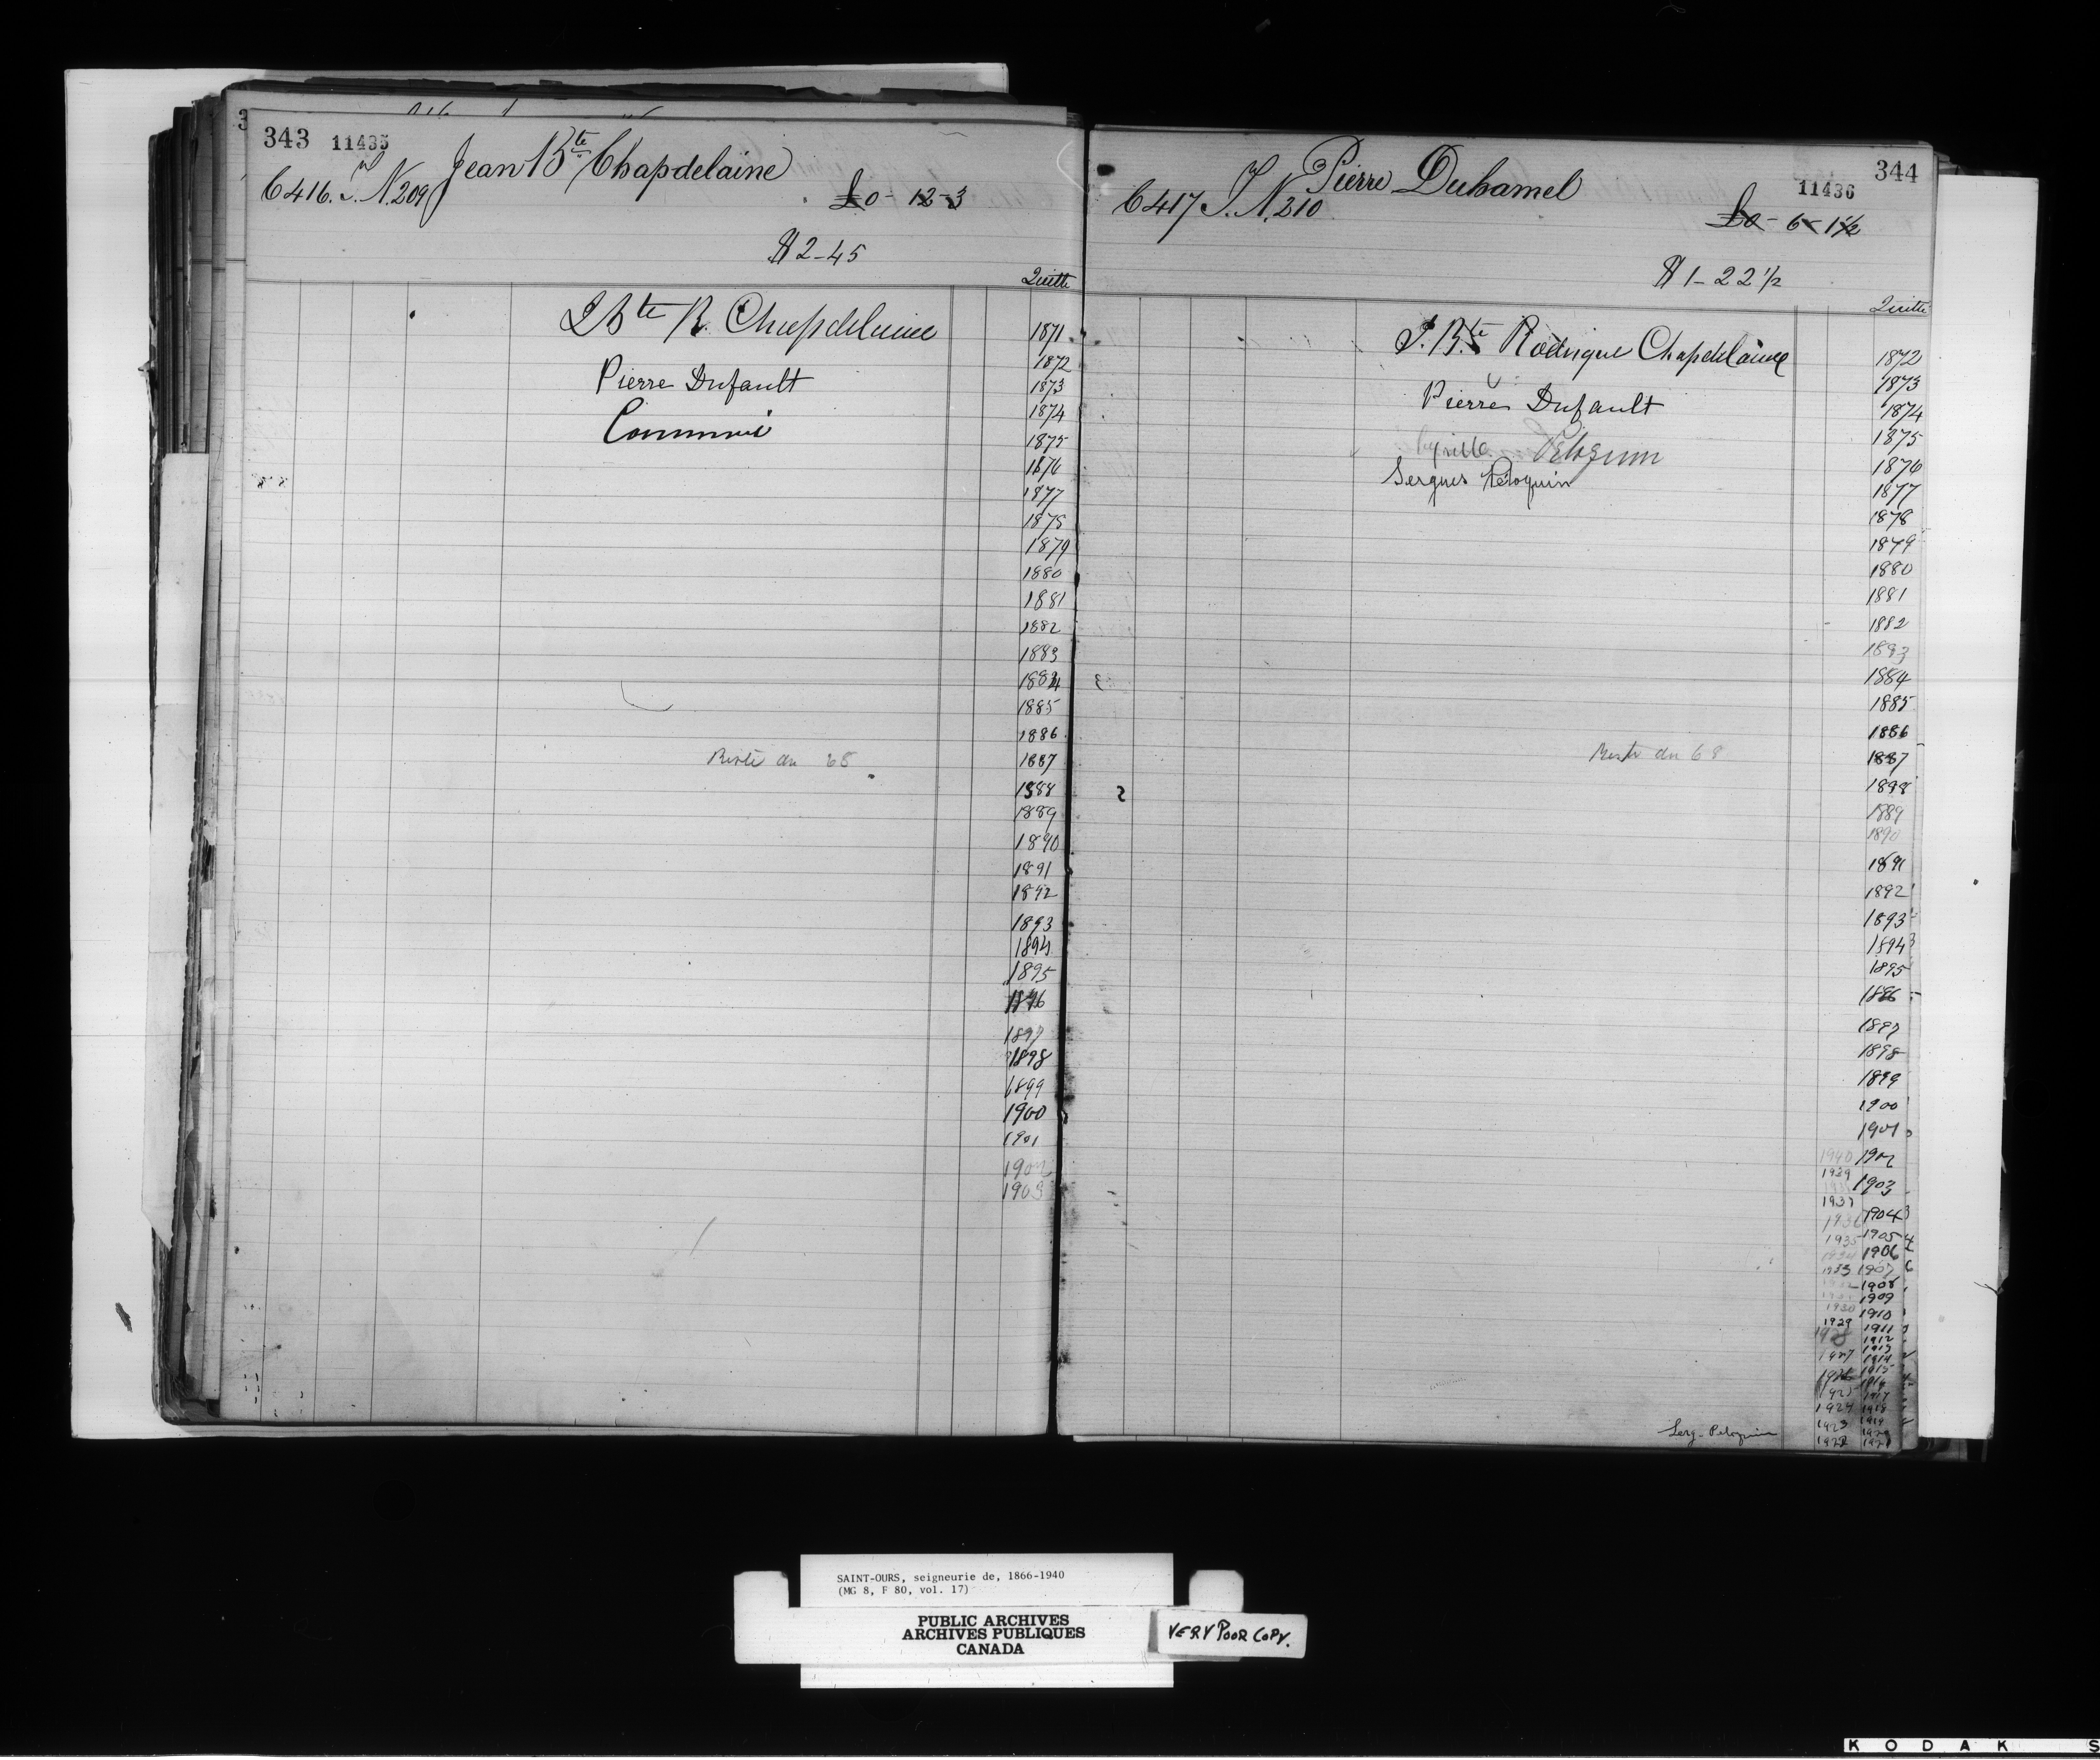 343 11435
Jean Bte Chapdelaine
C 416. T. N. 209
£0-12-3
$2-45
Quitte
J Bte R. Chapdelaine
1871
1872
Pierre Dufault
1873
1874
1875
1876
1877
1878
1879
1880
1881
1882
1883
1884
1885
1886
Reste du 68
1887
1888
1889
1890
1891
1892
1893
1894
1895
1896
1897
1898
1899
1900
1901
1902
1903
344
11436
Pierre Duhamel
C 417 T. N. 210
£0-6-1½
$1-22½
Quitte
J. Bte Rodrigue Chapdelaine
1872
1873
Pierre Dufault
1874
1875
Cyrille Peloquin
1876
Sergius Péloquin
1877
1878
1879
1880
1881
1882
1883
1884
1885
1886
Reste du 68
1887
1888
1889
1890
1891
1892
1893
1894
1895
1896
1897
1898
1899
1900
1901
1940 1902
1939
1903
1937
1936 1904
1935 1905
1934 1906
1933 1907
1908
1909
1930 1910
1929 1911
1928 1912
1913
1927 1914
1915
1916
1925 1917
1924 1918
1923 1919
Serg. Peloquin
1922 1921
SAINT-OURS, seigneurie de, 1866-1940
(MG 8, F 80, vol. 17)
PUBLIC ARCHIVES
ARCHIVES PUBLIQUES
CANADA
VERY POOR COPY.
KODAK S